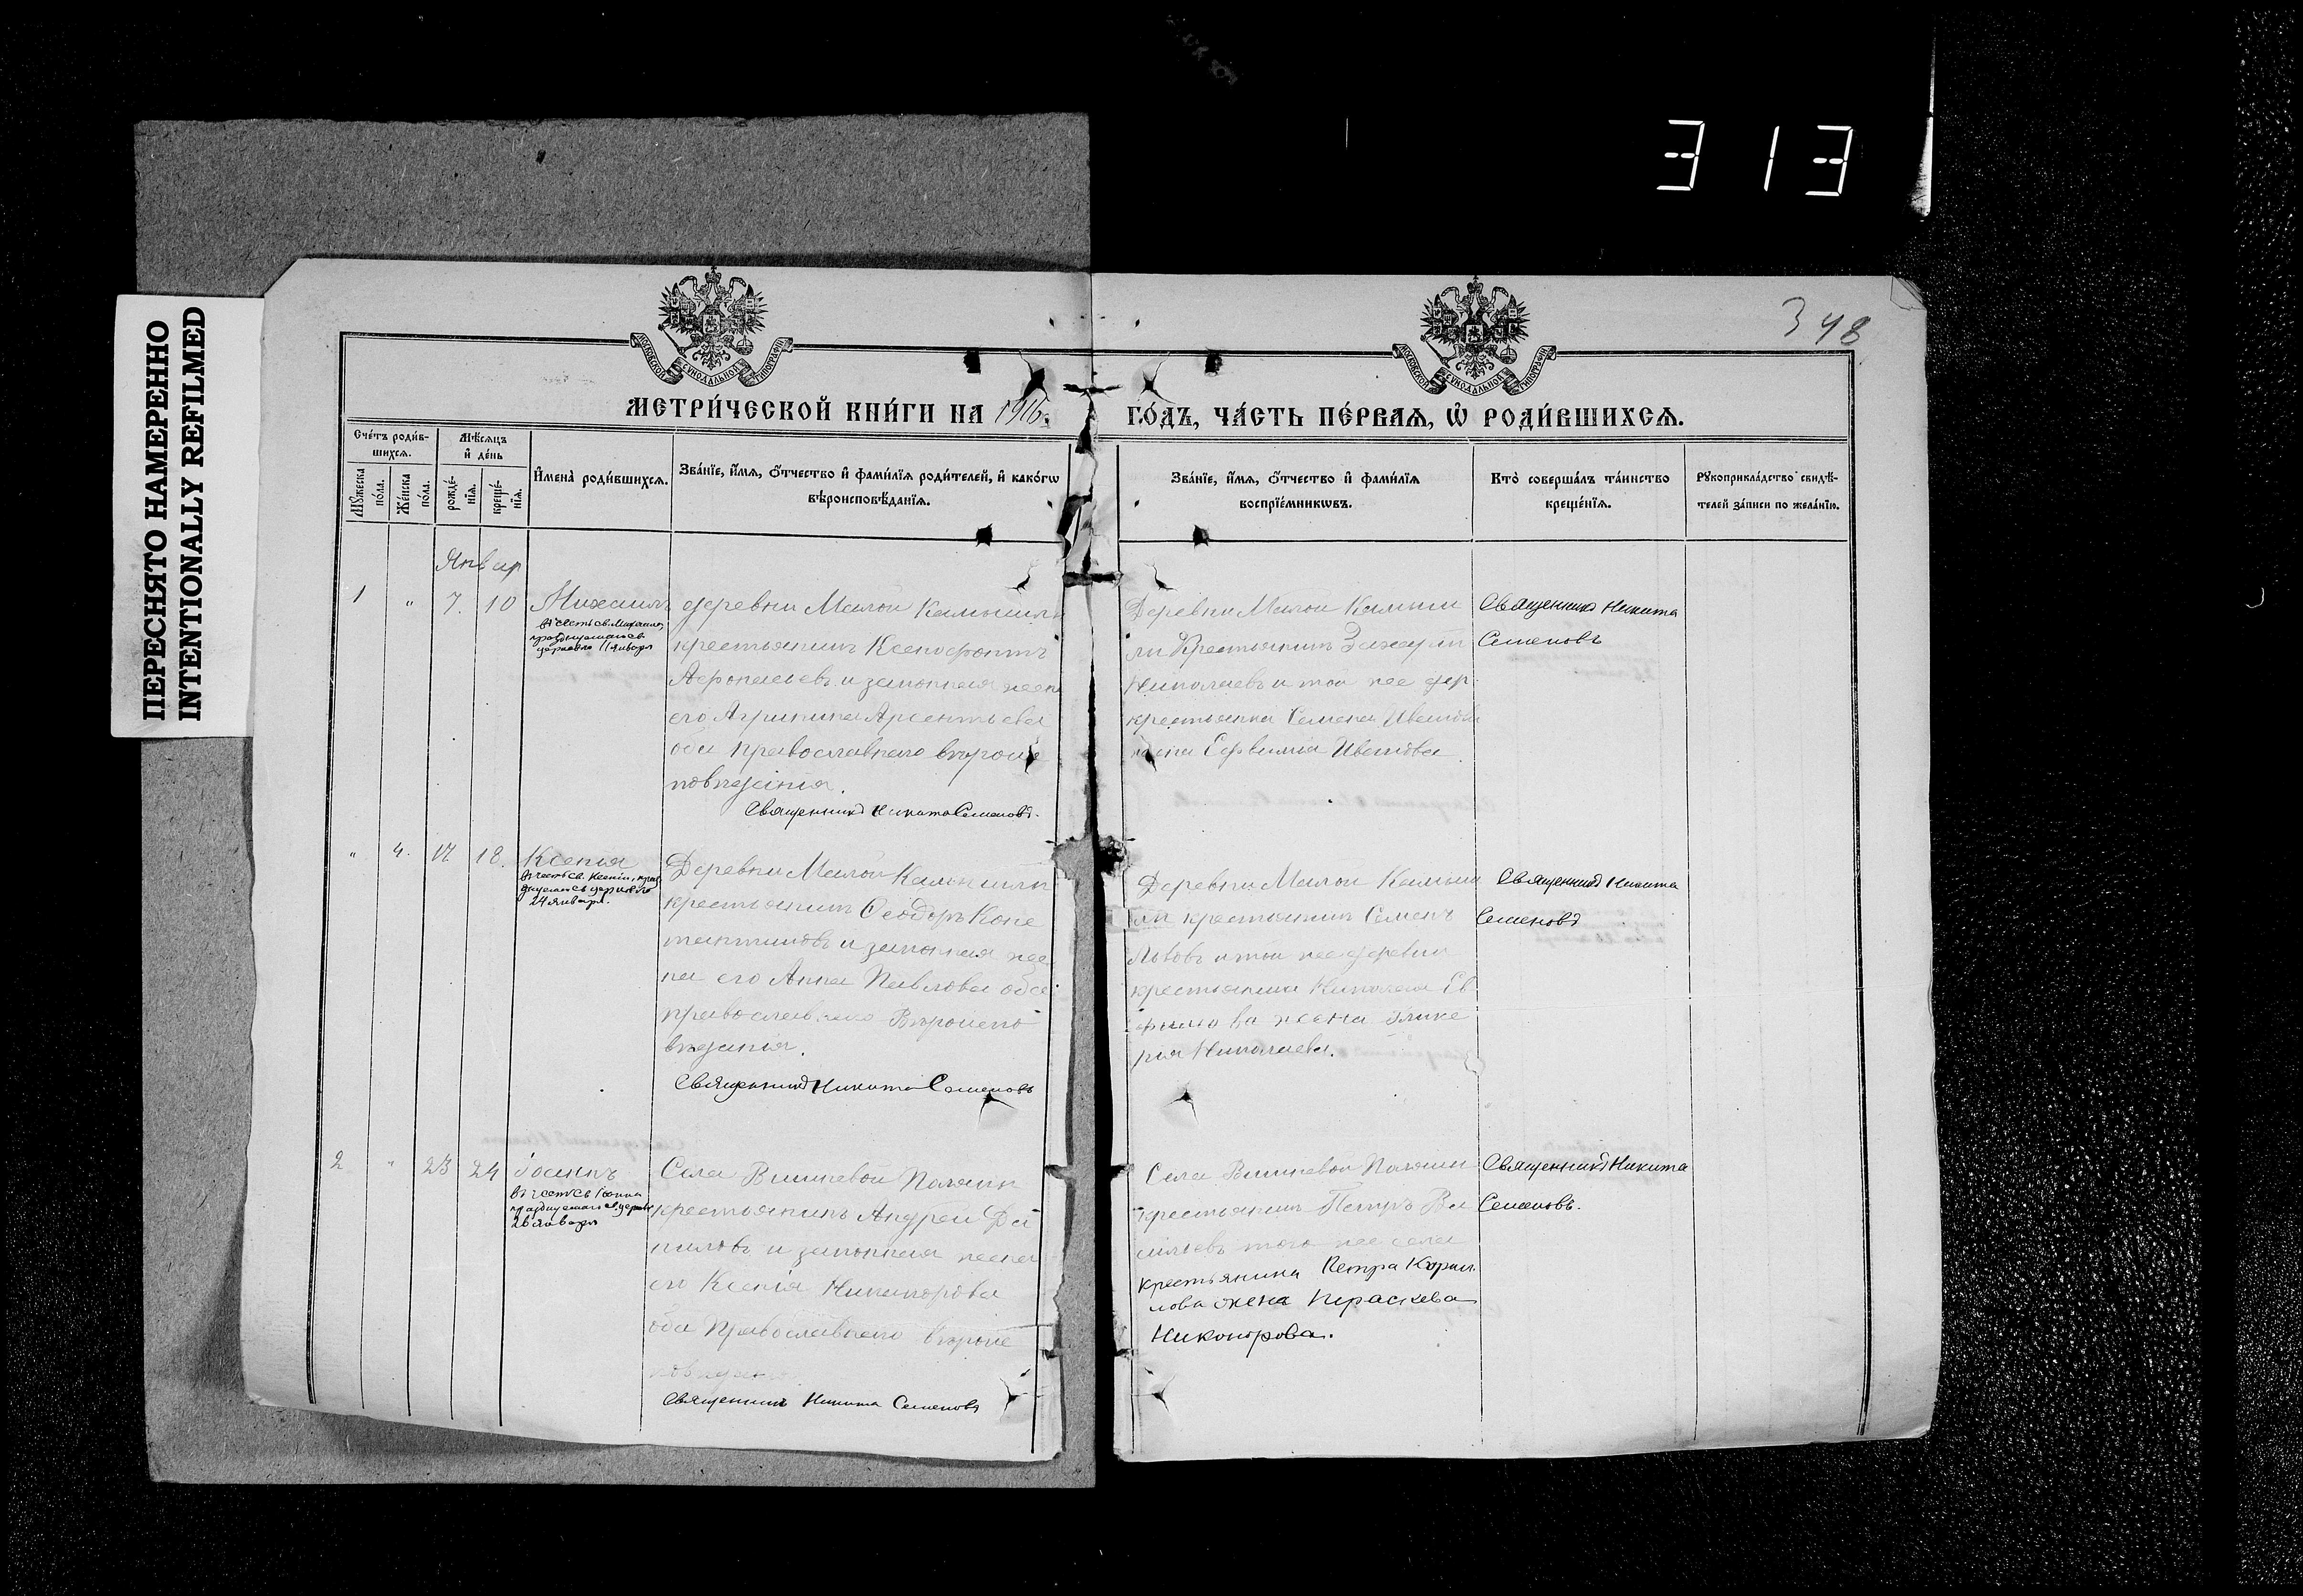 313
ПЕРЕСНЯТО НАМЕРЕННО
INTENTIONALLY REFILMED
348
МОСКОВСКОЙ СѴНОДАЛЬНОЙ ТИПОГРАФІИ
МОСКОВСКОЙ СѴНОДАЛЬНОЙ ТИПОГРАФІИ
МЕТРИ́ЧЕСКОЙ КНИ́ГИ НА 1916.
ГО́ДЪ, ЧА́СТЬ ПЕ́РВАЯ, Ѡ РОДИ́ВШИХСЯ.
Сче́тъ роди́в-
шихся.
Мѣ́сяцъ
и҆ де́нь
Мꙋ́жеска
по́ла.
Же́нска
по́ла.
рожде́-
нїя.
креще́-
нїя.
И҆мена̀ роди́вшихся.
Зва́нїе, и҆́мя, ѻ҆́тчество и҆ фами́лїя роди́телей, и҆ како́гѡ
вѣроисповѣ́данїя.
Зва́нїе, и҆́мя, ѻ҆́тчество и҆ фами́лїя
воспрїе́мникѡвъ.
Кто̀ соверша́лъ та́инство
креще́нїя.
Рꙋкоприкла́дство свидѣ́-
телей за́писи по жела́нїю.
Январ
1 " 7. 10 Михаилъ
въ честь св. Михаила,
празднуемаго св.
церковію 11 января
деревни Малой Камышли
крестьянинъ Ксенофонтъ
и законная жена
его Агрипина Арсентьева
оба православнаго вѣроис
повѣданія.
Священникъ Никита Семеновъ.
Деревни Малой Камыш
ли Крестьянинъ
Николаевъ и той же дер.
крестьянина Семена Иванова
жена Евфимія Иванова.
Священникъ Никита
Семеновъ
" 4. 17 18. Ксенія
въ честь св. Ксеніи, праз
днуемой св. церковію
24 января.
Деревни Малой Камышли
крестьянинъ Ѳеодоръ Конс
тантиновъ и законная же
на его Анна Павлова оба
православнаго Вѣроиспо
вѣданія.
Священникъ Никита Семеновъ
Деревни Малой Камыш
ли крестьянинъ Семенъ
Львовъ и той же деревни
крестьянина Николая Ев
фимова жена Глике
рія Николаева.
Священникъ Никита
Семеновъ
2 " 23 24 Іоаннъ
въ честь св. Іоанна
празднуемаго св. церков
26 января
Села Вишневой Поляны
крестьянинъ Андрей Да
ниловъ и законная жена
его Ксенія Никанорова
оба Православнаго вѣроис
Священникъ Никита Семеновъ
Села Вишневой Поляны
крестьянинъ Петръ Ва
сильевъ того же села
крестьянина Петра Корнил
лова жена Параскева
Никонорова.
Священникъ Никита
Семеновъ.